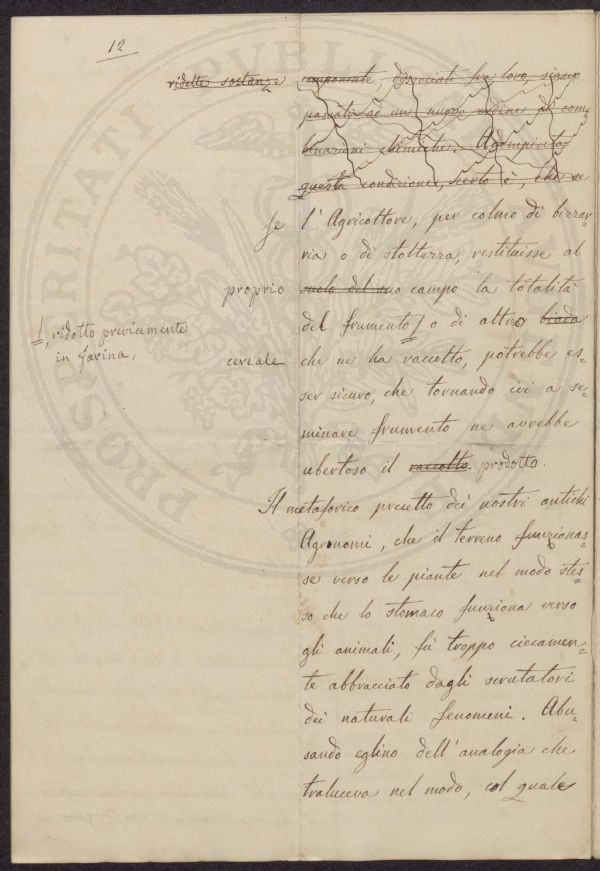 12
ridette sostanze componente, dissociati fra loro, sieno
passati ad un nuovo ordine di com=
binazioni chimiche. Adempiuta
questa condizione, certo è, che se
Se l'Agricoltore, per colmo di bizzar=
ria o di stoltezza, restituisse al
proprio suolo del suo campo la totalità
del frumento / o di altro biada
/, ridotto previamente
in farina,
cereale che ne ha raccolto, potrebbe es=
ser sicuro, che tornando ivi a se=
minare frumento ne avrebbe
ubertoso il raccolto prodotto.
Il metaforico precetto dei nostri antichi
Agronomi, che il terreno funzionas=
se verso le piante nel modo stes=
so che lo stomaco funziona verso
gli animali, fù troppo ciecamen=
te abbracciato dagli scrutatori
dei naturali fenomeni. Abu=
sando eglino dell'analogia che
traluceva nel modo, col quale
PROSPERITATI PUBLICAE